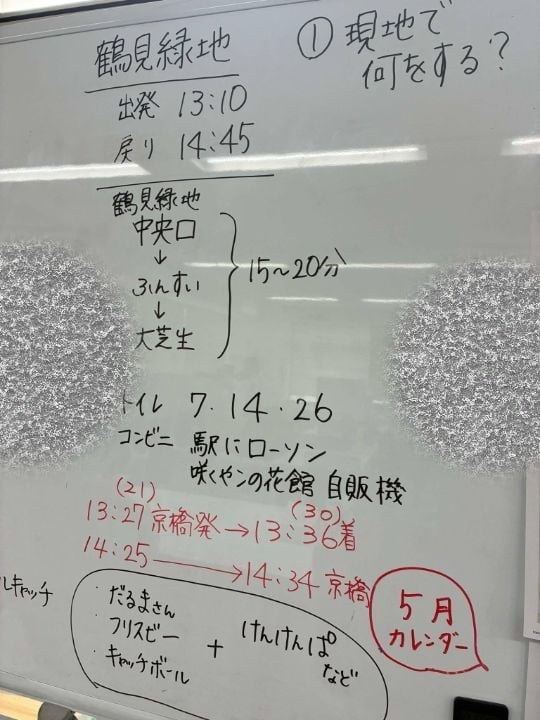 鶴見緑地
出発 13:10
戻り 14:45
① 現地で
何をする?
鶴見緑地
中央口
↓
ふんすい
↓
大芝生
15〜20分
トイレ 7.14.26
コンビニ 駅にローソン
咲くヤンの花館 自販機
(21) (30)
13:27 京橋発→13:36着
14:25→14:34 京橋
ルキャッチ
・だるまさん
フリスビー
・キャッチボール
+ けんけんぱ
など
5月
カレンダー